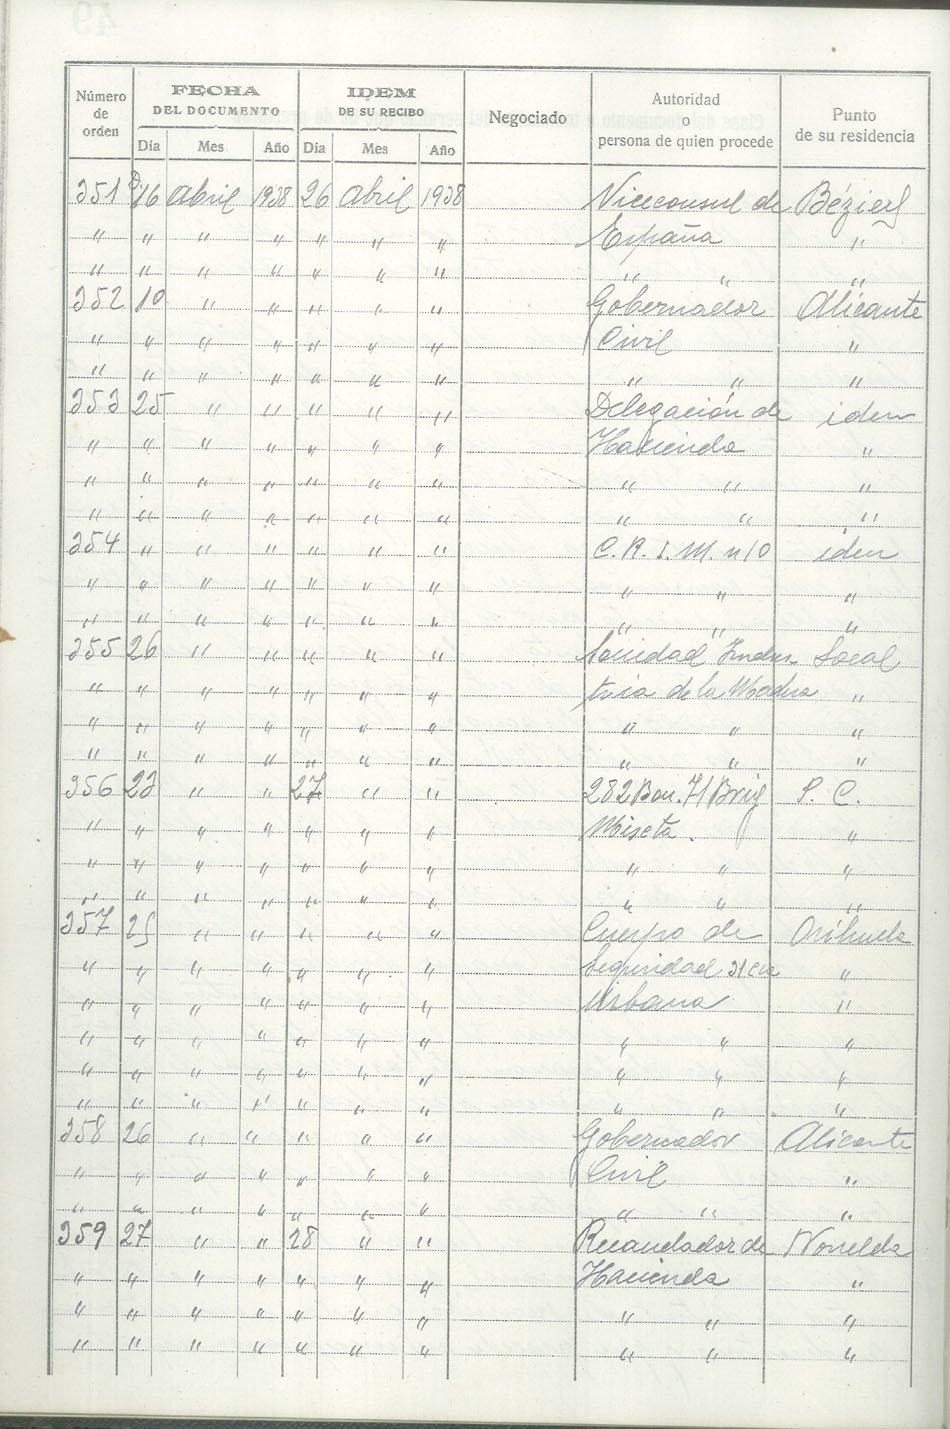 Número de orden
FECHA DEL DOCUMENTO
IDEM DE SU RECIBO
Negociado
Autoridad o persona de quien procede
Punto de su residencia
Día Mes Año Día Mes Año
351 16 Abril 1938 26 Abril 1938 Viceconsul de Béziers
" " " " " " " España "
" " " " " " " " " "
352 10 " " " " " Gobernador Alicante
" " " " " " " Civil "
" " " " " " " " " "
353 25 " " " " " Delegación de iden
" " " " " " " Hacienda "
" " " " " " " " " "
" " " " " " " " " "
354 " " " " " " C. R. I. M. nº 10 iden
" " " " " " " " " "
" " " " " " " " " "
355 26 " " " " " Sociedad Indus- Local
" " " " " " " tria de la Madera "
" " " " " " " " " "
" " " " " " " " " "
356 23 " " 27 " " 282 Bon. 71 Brig P. C.
" " " " " " " Miscta. "
" " " " " " " " " "
" " " " " " " " " "
357 25 " " " " " Cuerpo de Orihuela
" " " " " " " Seguridad 21 Cia "
" " " " " " " Urbana "
" " " " " " " " " "
" " " " " " " " " "
" " " " " " " " " "
358 26 " " " " " Gobernador Alicante
" " " " " " " Civil "
" " " " " " " " " "
359 27 " " 28 " " Recaudador de Novelda
" " " " " " " Hacienda "
" " " " " " " " " "
" " " " " " " " " "